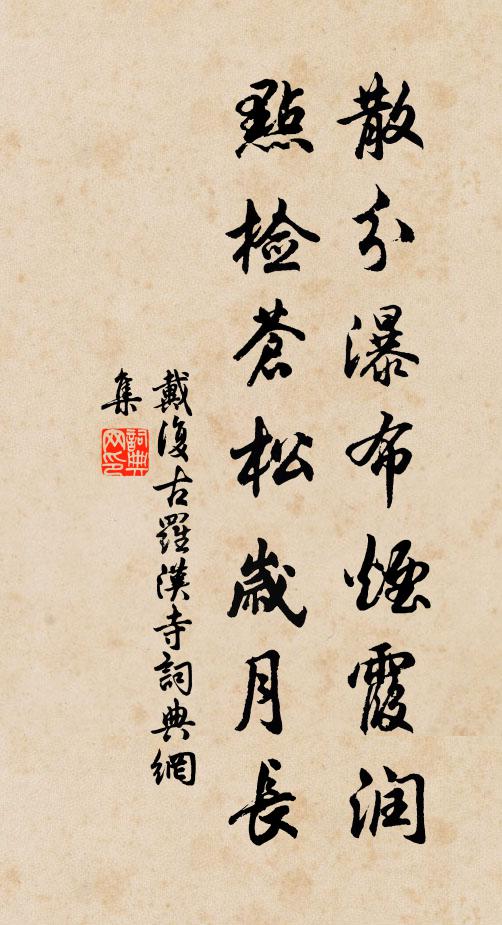 散分瀑布煙霞润
點檢蒼松歲月長
戴復古羅漢寺詞典網
集
詞典
网印